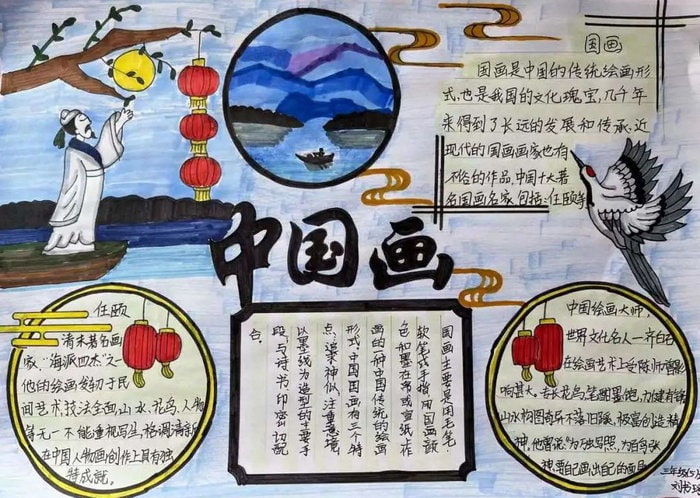 国画
国画是中国的传统绘画形
式,也是我国的文化瑰宝,几千年
来得到了长远的发展和传承,近
现代的国画画家也有
不俗的作品,中国十大著
名国画名家,包括:任颐等
中国画
任颐
清末著名画
家、“海派四杰”之一
他的绘画发初于民
间艺术,技法全面,山水、花鸟、人物
等无一不能,重视写生,格调清新
在中国人物画创作上具有独
特成就。
国画主要是用毛笔、
软笔或手指,用国画颜
色和墨在帛或宣纸上作
画的一种中国传统的绘画
形式,中国国画有三个特
点:追求神似,注重意境
以墨线为造型的主要手
段,与诗、书、印密切结
合。
中国绘画大师,
世界文化名人—齐白石
在绘画艺术上受陈师曾影
响甚大,专长花鸟,笔酣墨饱,力健有锋
山水构图奇异不落旧蹊,极富创造精
神,他曾说“为万虫写照,为百鸟张
神,要自己画出自己的面目
三年级(5)
刘书